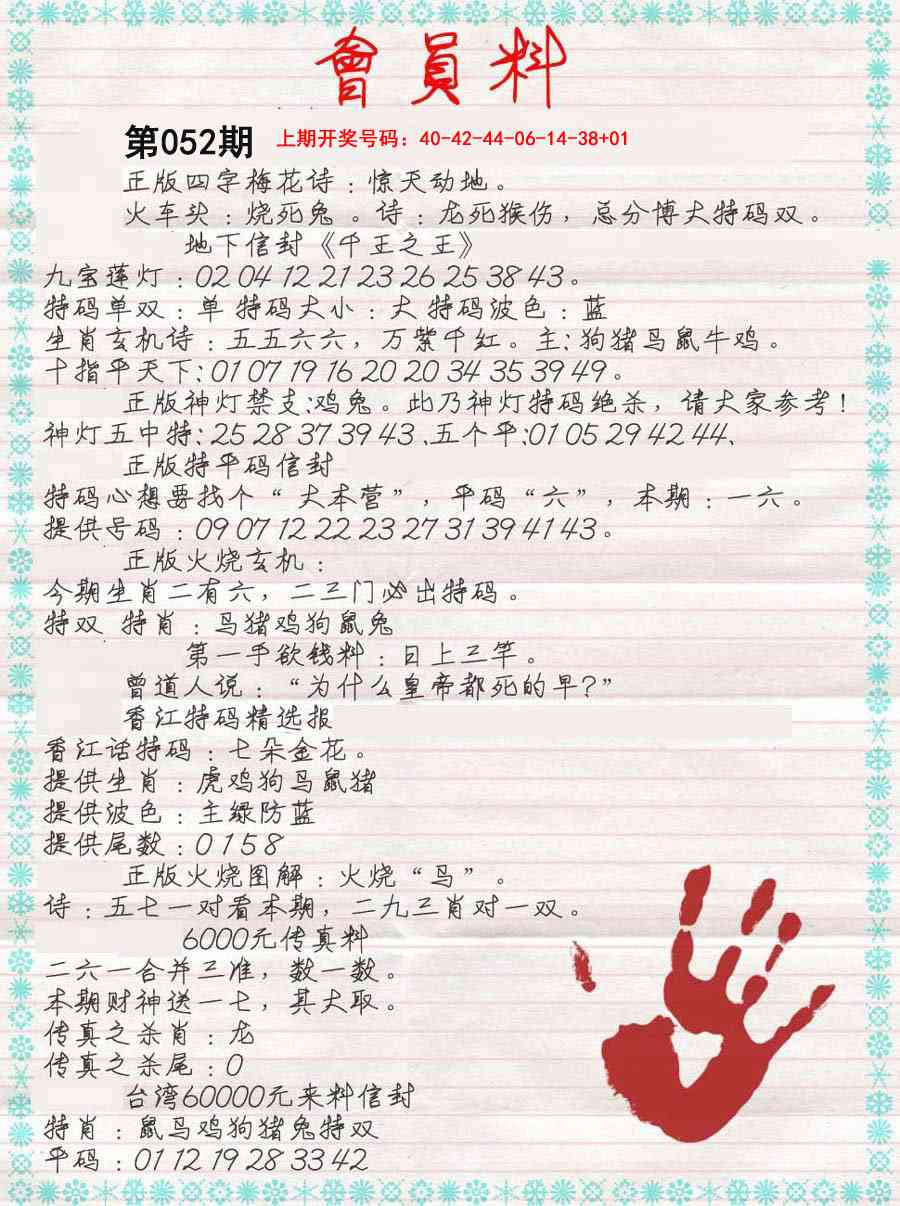 會員料
第052期 上期开奖号码：40-42-44-06-14-38+01
正版四字梅花诗：惊天动地。
火车头：烧死兔。诗：龙死猴伤，总分博大特码双。
地下信封《千王之王》
九宝莲灯：02 04 12 21 23 26 25 38 43。
特码单双：单 特码大小：大 特码波色：蓝
生肖玄机诗：五五六六，万紫千红。主：狗猪马鼠牛鸡。
十指平天下：01 07 19 16 20 20 34 35 39 49。
正版神灯禁支：鸡兔。此乃神灯特码绝杀，请大家参考！
神灯五中特：25 28 37 39 43、五个平：01 05 29 42 44、
正版特平码信封
特码心想要找个“大本营”，平码“六”，本期：一六。
提供号码：09 07 12 22 23 27 31 39 41 43。
正版火烧玄机：
今期生肖二有六，二三门必出特码。
特双 特肖：马猪鸡狗鼠兔
第一手欲钱料：日上三竿。
曾道人说：“为什么皇帝都死的早？”
香江特码精选报
香江话特码：七朵金花。
提供生肖：虎鸡狗马鼠猪
提供波色：主绿防蓝
提供尾数：0 1 5 8
正版火烧图解：火烧“马”。
诗：五七一对看本期，二九三肖对一双。
6000元传真料
二六一合并三准，数一数。
本期财神送一七，其大取。
传真之杀肖：龙
传真之杀尾：0
台湾60000元来料信封
特肖：鼠马鸡狗猪兔特双
平码：01 12 19 28 33 42